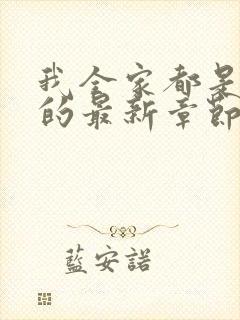 我全家都是
的最新章節
藍安諾